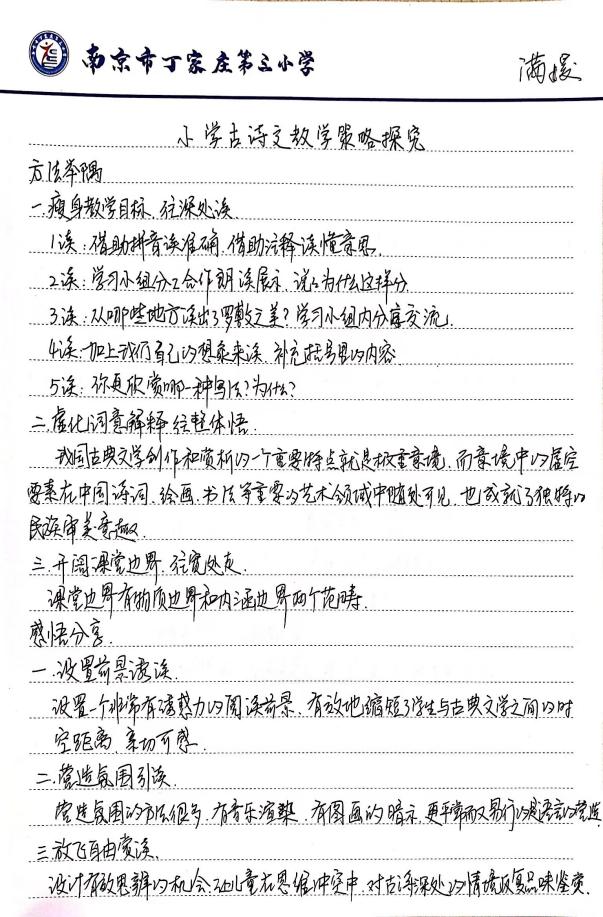 南京市丁家庄第三小学
满媛
小学古诗文教学策略探究
方法举隅
一.瘦身教学目标,往深处读
1读:借助拼音读准确,借助注释读懂意思.
2读:学习小组分工合作朗读展示,说说为什么这样分.
3读:从哪些地方读出了罗敷之美?学习小组内分享交流.
4读:加上我们自己的想象来读,补充括号里的内容.
5读:你更欣赏哪一种写法?为什么?
二.虚化词意解释,往整体悟.
我国古典文学创作和赏析的一个重要特点就是极重意境,而意境中的虚空
要素在中国诗词、绘画、书法等重要的艺术领域中随处可见,也成就了独特的
民族审美意趣.
三.开阔课堂边界,往宽处走.
课堂边界有物质边界和内涵边界两个范畴.
感悟分享.
一.设置前景诱读.
设置一个非常有诱惑力的阅读前景,有效地缩短了学生与古典文学之间的时
空距离,亲切可感.
二.营造氛围引读.
营造氛围的方法很多,有音乐渲染,有图画的暗示,更平常而又易行的是语言的营造.
三.放飞自由赏读.
设计有效思辨的机会,让儿童在思维冲突中,对古诗深处的情境反复品味鉴赏.